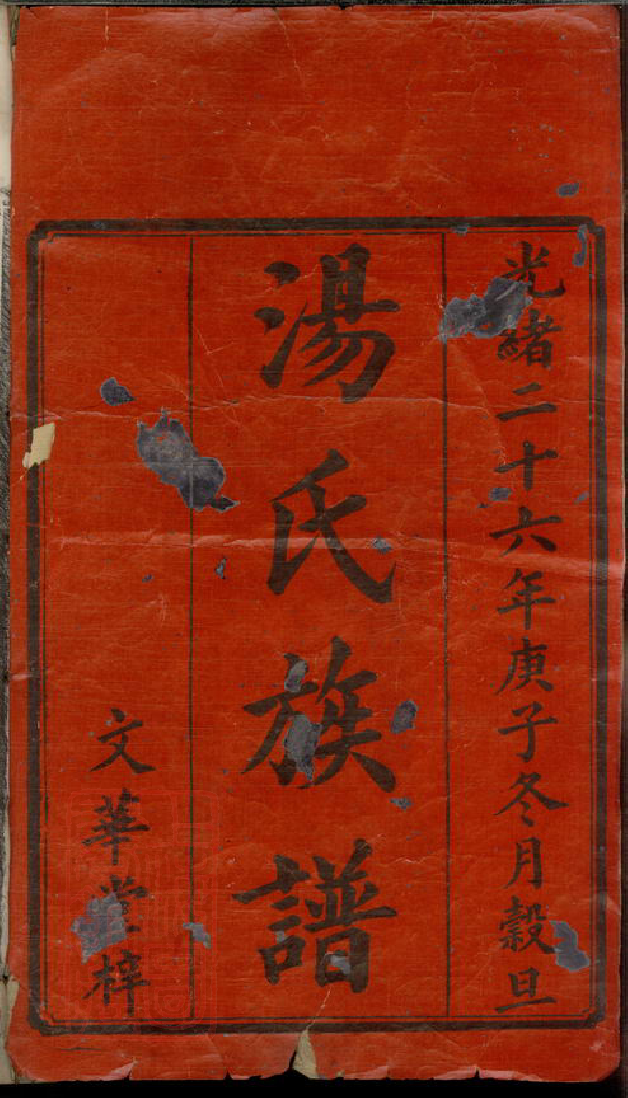 光緒二十六年庚子冬月穀旦
湯氏族譜
文華堂梓